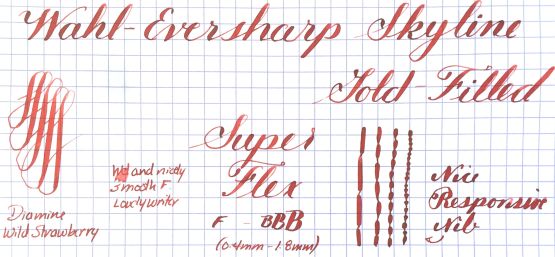 Wahl-Eversharp Skyline
Gold-Filled
Super
Flex
F - BBB
(0.4mm - 1.8mm)
Wet and nicely
smooth F.
Lovely writer
Nice
Responsive
Nib
Diamine
Wild Strawberry